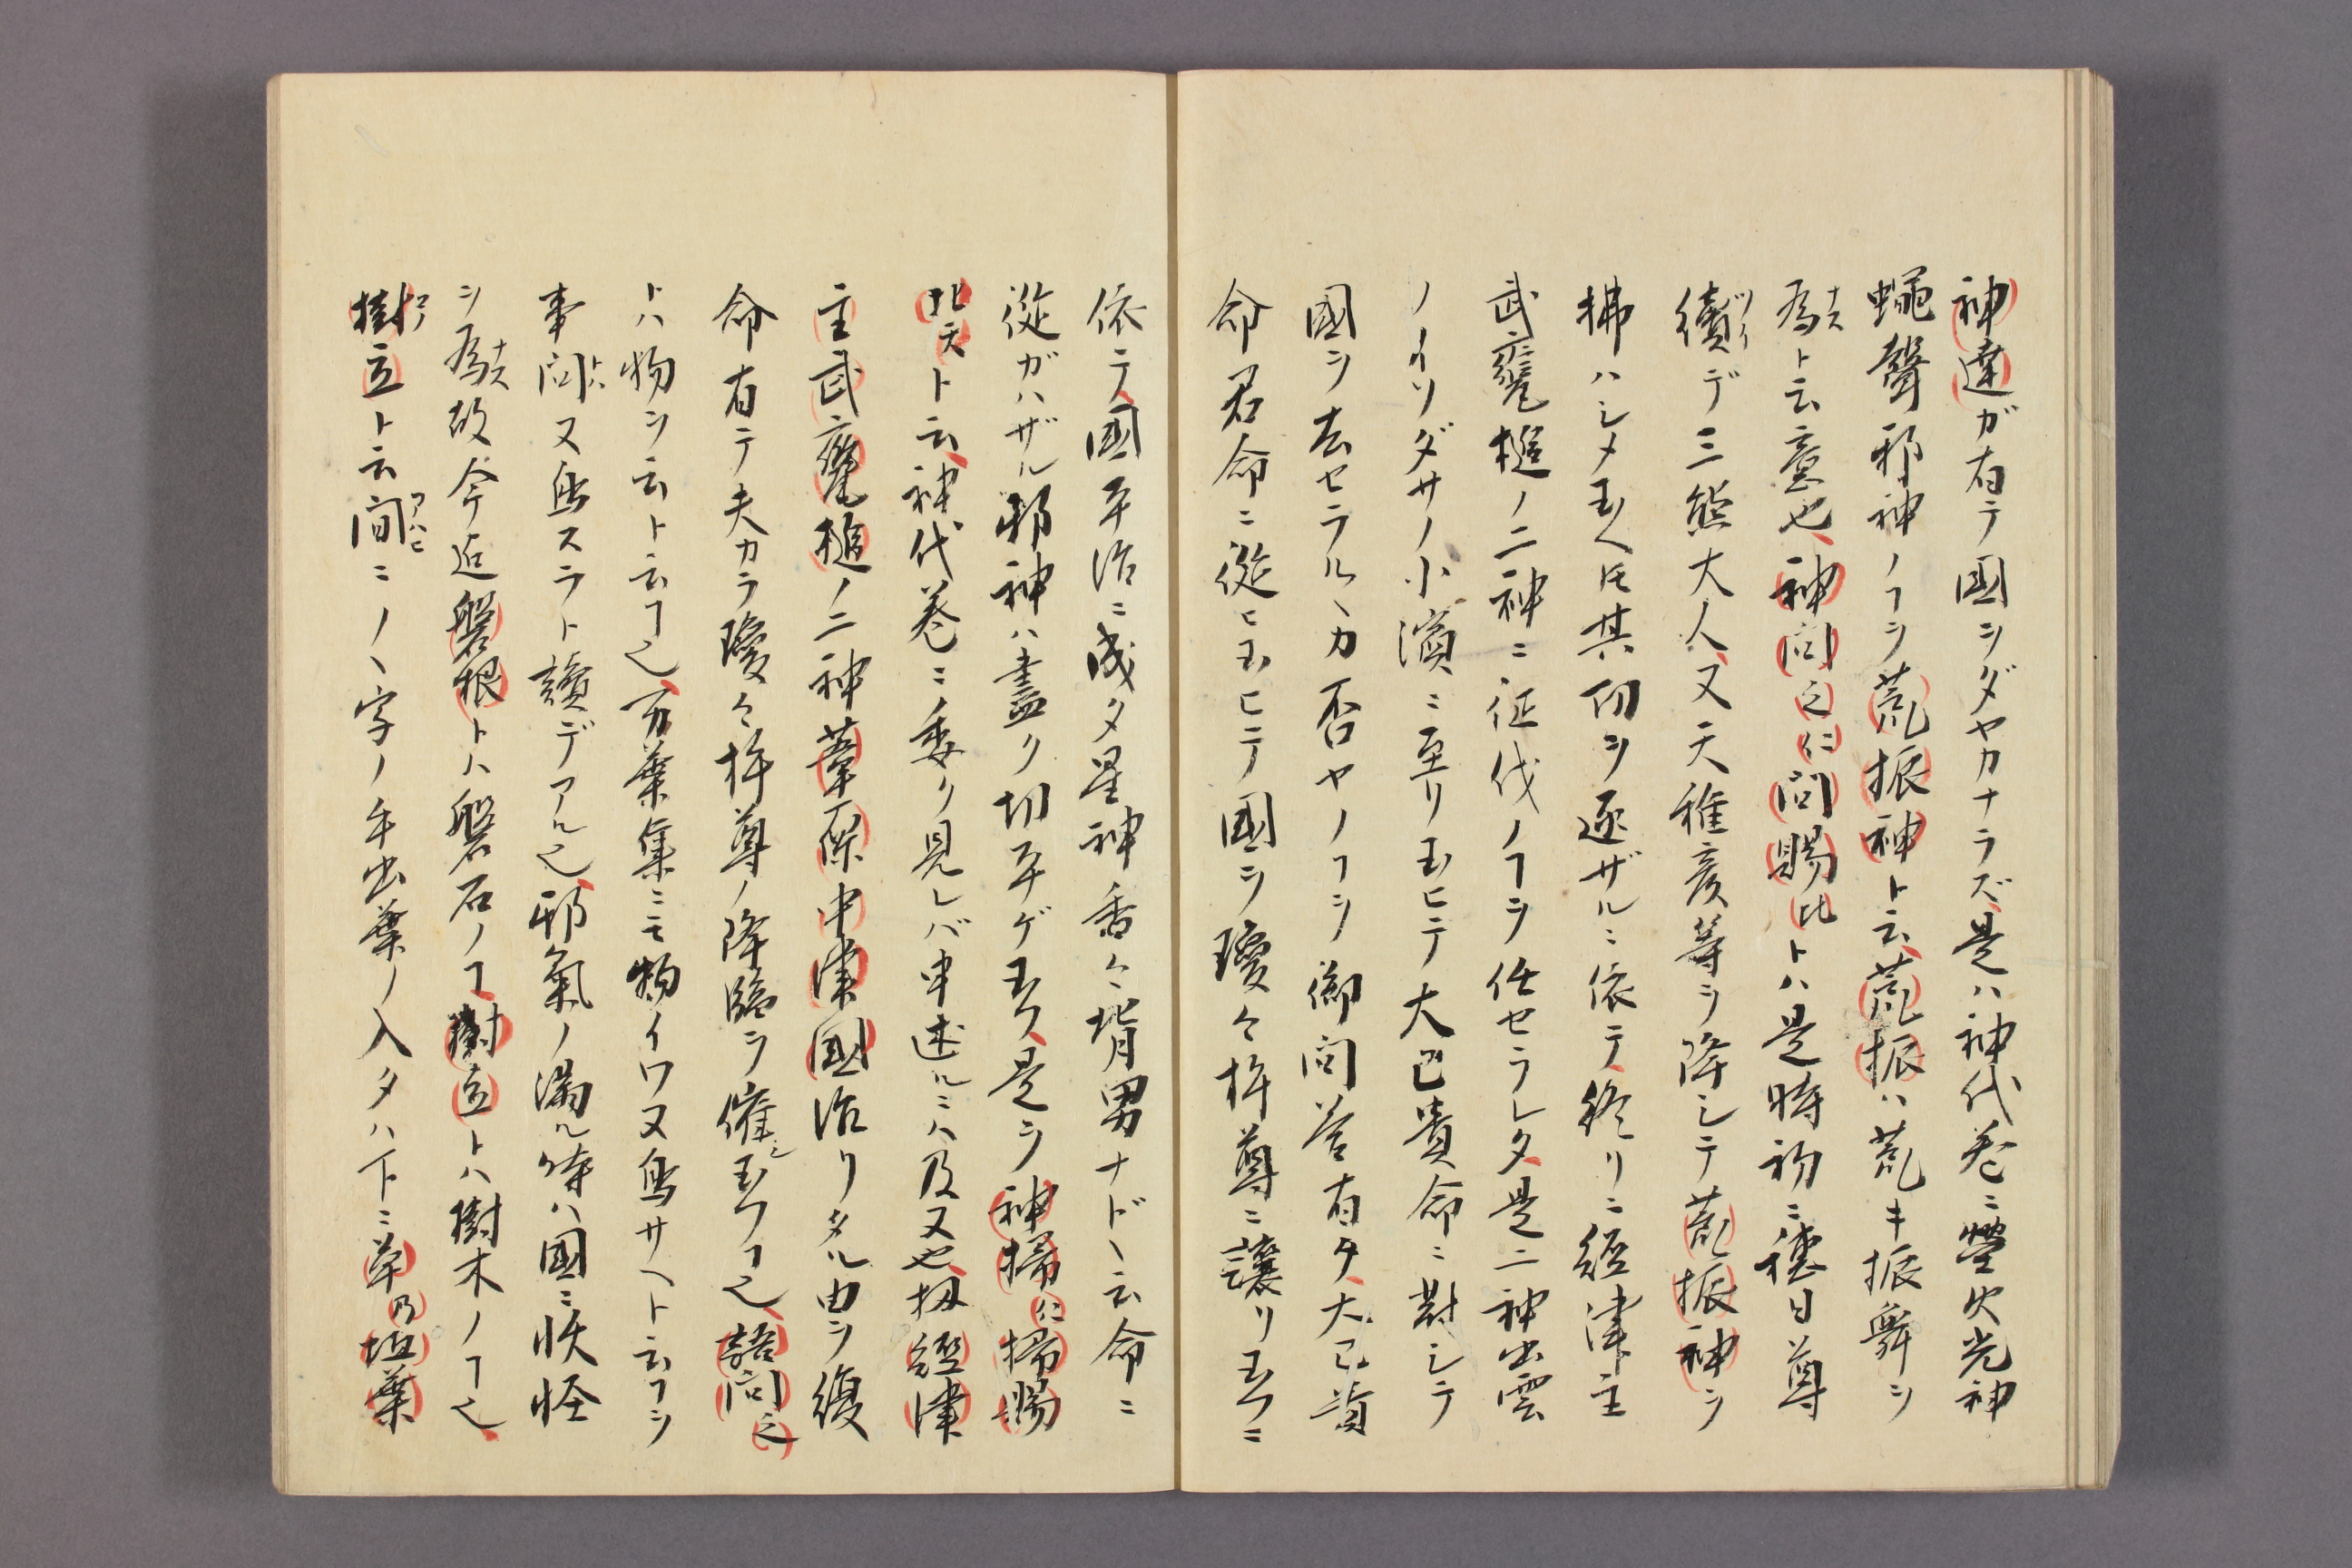 神達ガ有テ國シダヤカナラズ是ハ神代巻ニ螢火光神
蠅聲邪神ノヿヲ荒振神ト云荒振ハ荒キ振舞ヲ
為ナスト云意也神問之仁問賜比トハ是時初ニ穂日尊
續ツイデ三熊大人又天稚彦等ヲ降シテ荒振神ヲ
拂ハシメ玉ヘ𪜈其功ヲ遂ザルニ依テ終リニ經津主
武甕槌ノ二神ニ征伐ノヿヲ任セラレタ是二神出雲
ノイソダサノ小濱ニ至リ玉ヒテ大己貴命ニ對シテ
國ヲ去セラルヽカ否ヤノヿヲ御問答有タ大己貴
命君命ニ從ヒ玉ヒテ國ヲ瓊々杵尊ニ讓リ玉フニ
依テ國平治ニ成タ星神香々背男ナドヽ云命ニ
從ガハザル邪神ハ盡ク切平ゲ玉フ是ヲ神掃仁掃賜
比天ト云神代巻ニ委ク見レバ申述ルニハ及又也扨經津
主武甕槌ノ二神葦原中津國治リタル由ヲ復
命有テ夫カラ瓊々杵尊ノ降臨ヲ催シ玉フヿ也語問之
トハ物ヲ云ト云ヿ也万葉集ニモ物イワヌ鳥サヘト云ヿヲ
事問トハヌ鳥スラト讀デアル也邪氣ノ満ル時ハ國ニ妖怪
ヲ為ナス故今迄磐根トハ磐石ノヿ樹立トハ樹木ノヿ也
樹立ト云間アハヒニノヽ字ノ手出葉ノ入タハ下ニ草乃垣葉